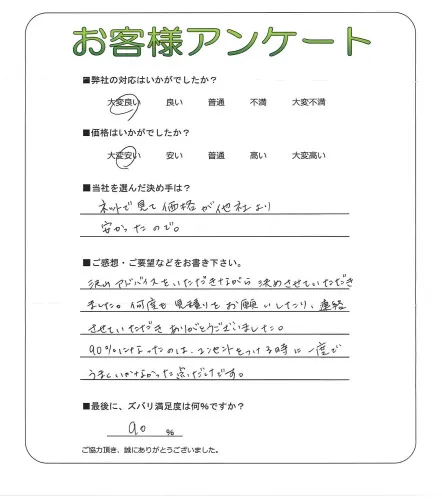 お客様アンケート
■弊社の対応はいかがでしたか？
大変良い 良い 普通 不満 大変不満
■価格はいかがでしたか？
大変安い 安い 普通 高い 大変高い
■当社を選んだ決め手は？
ネットで見て価格が他社より
安かったので。
■ご感想・ご要望などをお書き下さい。
決めアドバイスをいただきながら決めさせていただき
ました。何度も見積りをお願いしたり、連絡
させていただきありがとうございました。
90%になったのは、コンセントをつける時に一度で
うまくいかなかった点だけです。
■最後に、ズバリ満足度は何％ですか？
90 %
ご協力頂き、誠にありがとうございました。